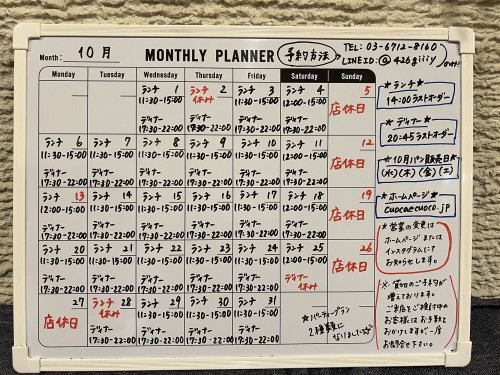 Month: 10月
MONTHLY PLANNER
予約方法
TEL: 03-6712-8160
LINE ID: @426giiiy
Monday Tuesday Wednesday Thursday Friday Saturday Sunday
ランチ 1 ランチ 2 ランチ 3 ランチ 4 5
11:30-15:00 休み 11:30-15:00 12:00-15:00 店休日
ディナー ディナー ディナー ディナー
17:30-22:00 17:30-22:00 17:30-22:00 17:30-22:00
ランチ 6 ランチ 7 ランチ 8 ランチ 9 ランチ 10 ランチ 11 12
11:30-15:00 11:30-15:00 11:30-15:00 11:30-15:00 11:30-15:00 12:00-15:00 店休日
ディナー ディナー ディナー ディナー ディナー ディナー
17:30-22:00 17:30-22:00 17:30-22:00 17:30-22:00 17:30-22:00 17:30-22:00
ランチ 13 ランチ 14 ランチ 15 ランチ 16 ランチ 17 ランチ 18 19
12:00-15:00 11:30-15:00 11:30-15:00 11:30-15:00 11:30-15:00 12:00-15:00 店休日
ディナー ディナー ディナー ディナー ディナー ディナー
17:30-22:00 17:30-22:00 17:30-22:00 17:30-22:00 17:30-22:00 17:30-22:00
ランチ 20 ランチ 21 ランチ 22 ランチ 23 ランチ 24 ランチ 25 26
11:30-15:00 11:30-15:00 11:30-15:00 11:30-15:00 11:30-15:00 12:00-15:00 店休日
ディナー ディナー ディナー ディナー ディナー ディナー
17:30-22:00 17:30-22:00 17:30-22:00 17:30-22:00 17:30-22:00 休み
27 ランチ 28 ランチ 29 ランチ 30 ランチ 31
店休日 休み 11:30-15:00 11:30-15:00 11:30-15:00
ディナー ディナー ディナー ディナー
17:30-22:00 17:30-22:00 17:30-22:00 17:30-22:00
☆パーティープラン
2種類に
なりました☆
★ランチ★
14:00ラストオーダー
★ディナー★
20:45ラストオーダー
★10月パン販売日★
(水)(木)(金)(土)
★ホームページ★
cuocaecuoco.jp
★営業の変更は
ホームページまたは
インスタグラムにて
お知らせします。
※貸切のご予約が
増えております。
ご来店をご検討中の
お客様にはお手数を
おかけしますが一度
お問合せ下さい。